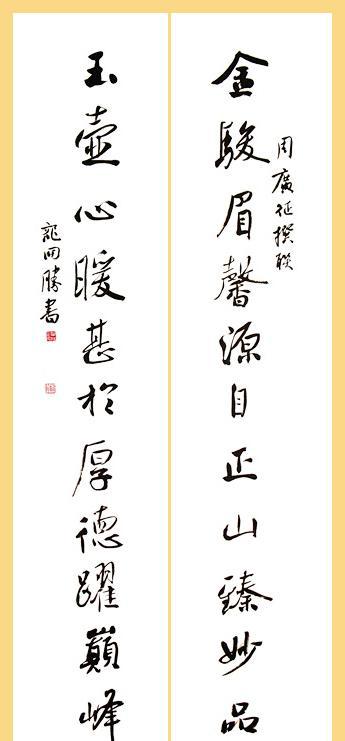 金駿眉馨源自正山臻妙品
周廣征撰聯
玉壺心暖基於厚德躍巔峰
龍勝書